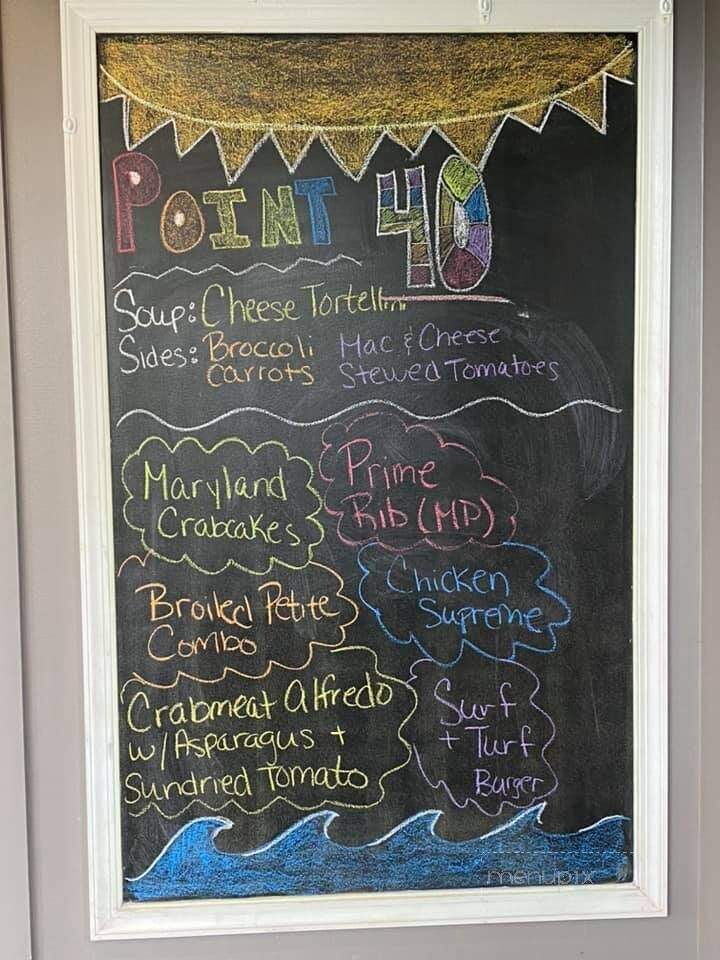 POINT 40
Soup: Cheese Tortellini
Sides: Broccoli Mac & Cheese
Carrots Stewed Tomatoes
Maryland
Crabcakes
Prime
Rib (MP)
Broiled Petite
Combo
Chicken
Supreme
Crabmeat Alfredo
w/ Asparagus +
Sundried Tomato
Surf
+ Turf
Burger
menupix